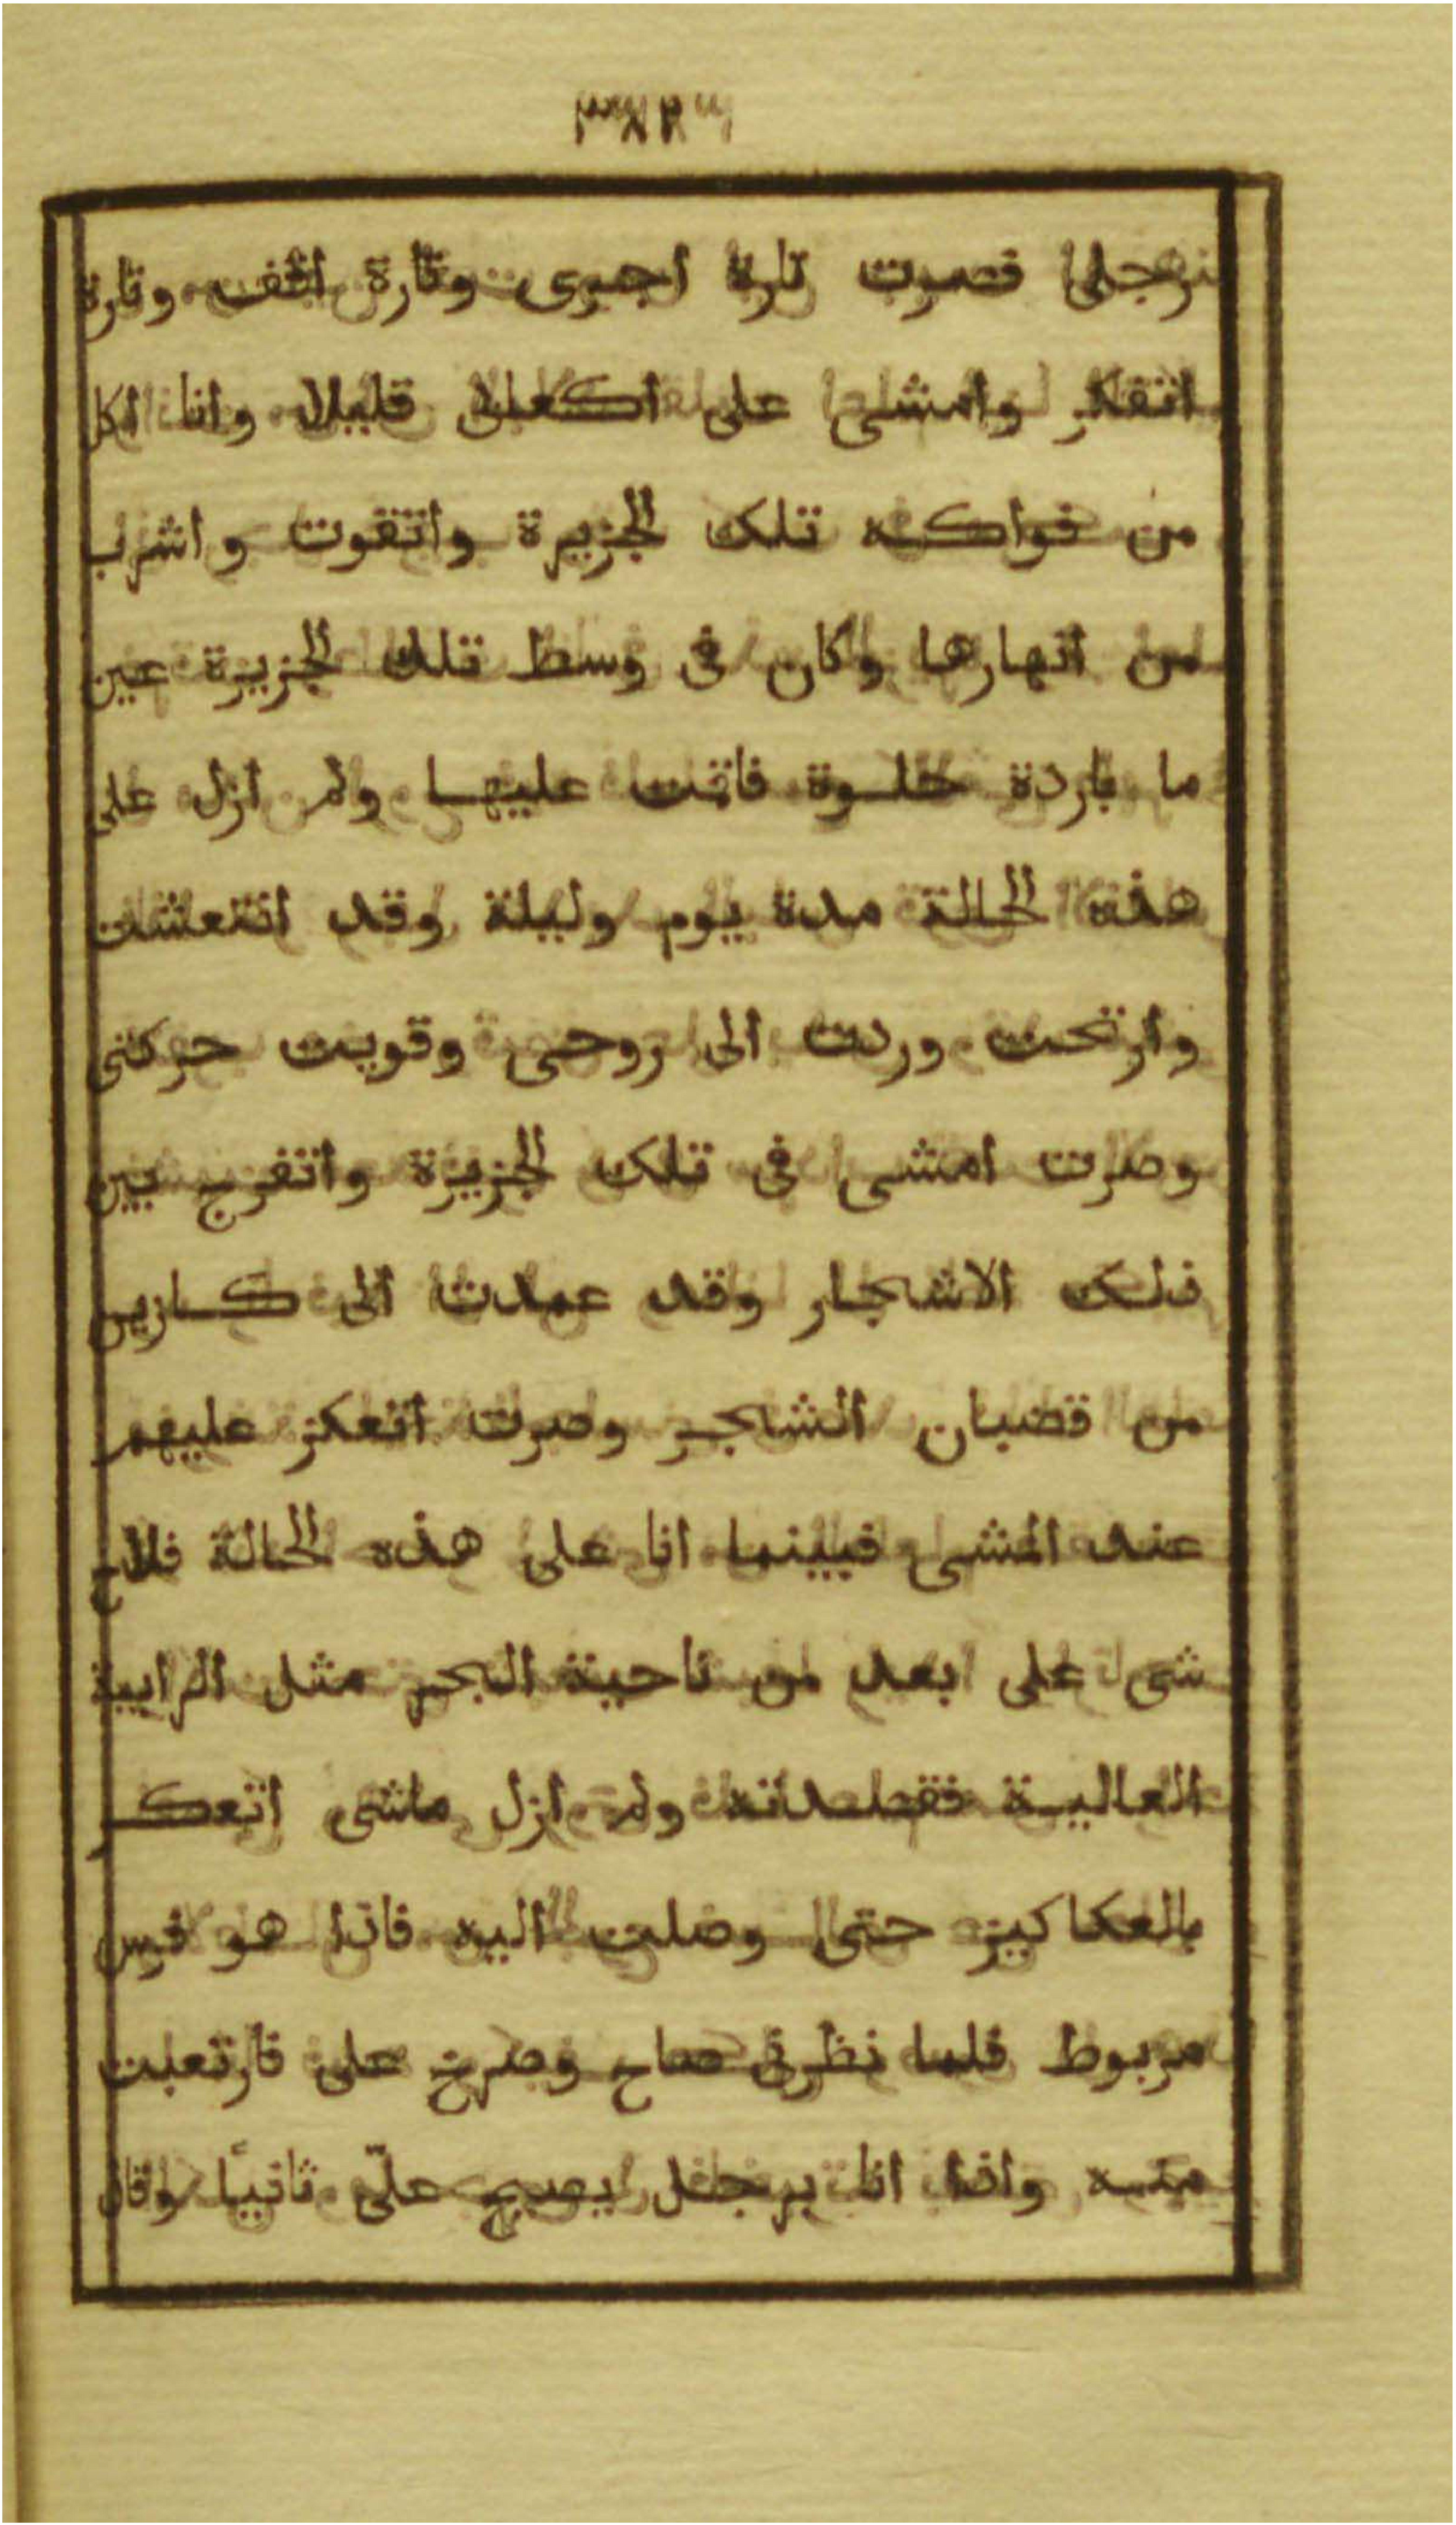 برجلى فصرت تارة اجبوى وتارة اقف وتارة
اتفكر وامشى على اكعابى قليلا وانا اكل
من فواكه تلك الجزيرة واتقوت واشرب
من انهارها وكان فى وسط تلك الجزيرة عين
ما باردة حلوة فاقمت عليها ولم ازل على
هذه الحالة مدة يوم وليلة وقد انتعشت
وارتحت وردت الى روحى وقويت حركتى
وصرت امشى فى تلك الجزيرة واتفرج بين
تلك الاشجار وقد عمدت الى عكازين
من قضبان الشجر وصرت اتعكز عليهم
عند المشى فبينما انا على هذه الحالة فلاح
شى على ابعد من ناحية البحر مثل الرابية
العالية فقصدته ولم ازل ماشى اتعكز
بالعكاكيز حتى وصلت اليه فاذا هو فرس
مربوط فلما نظرنى صاح وصرخ على فارتعبت
منه واذا انا برجل يصيح علىّ ثانيًا وقال